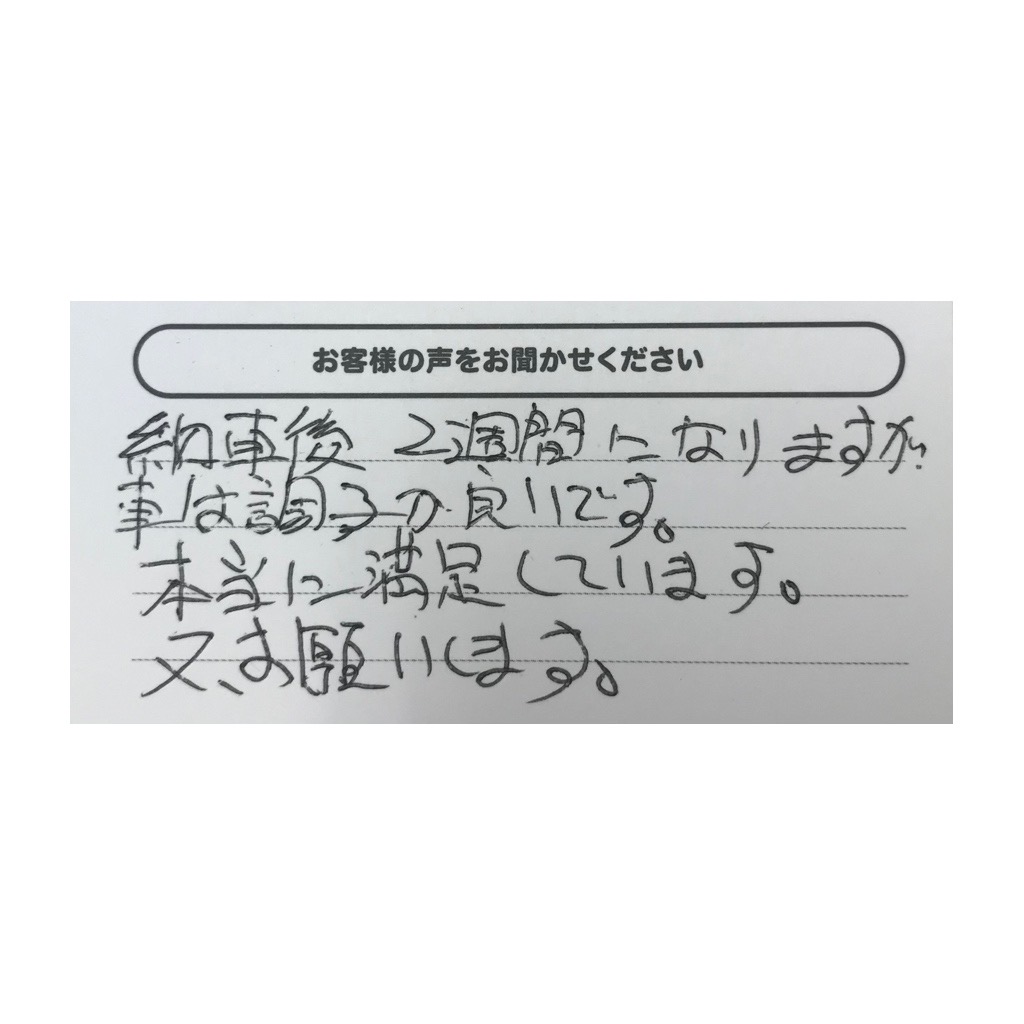 お客様の声をお聞かせください
納車後 2週間になりますが
車は調子が良いです。
本当に満足しています。
又、お願いします。